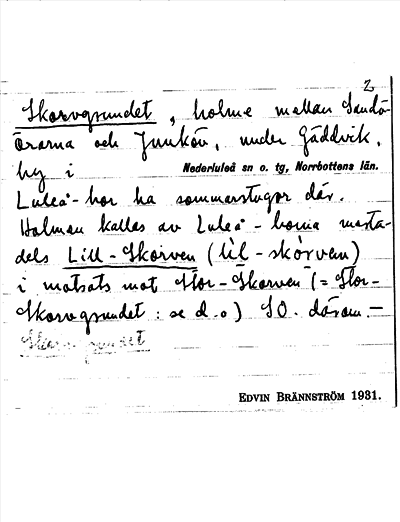 2
Skorvgrundet, holme mellan Sandö-
örarna och Junkön, under Gäddvik,
by i Nederluleå sn o. tg, Norrbottens län.
Luleå-bor ha sommarstugor där.
Holmen kallas av Luleå-borna mesta-
dels Lill-Skorven (lìl-skòrven)
i motsats mot Stor-Skorven (= Stor-
Skorvgrundet: se d. o) SO. därom.—
EDVIN BRÄNNSTRÖM 1931.